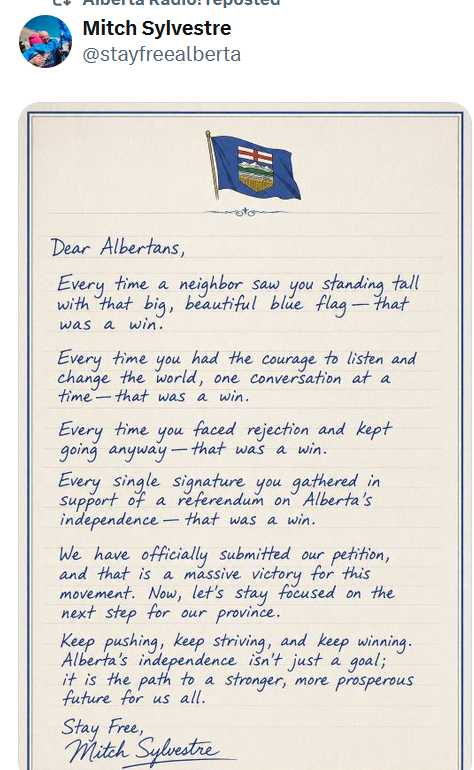 Alberta Radio! reposted
Mitch Sylvestre
@stayfreealberta
Dear Albertans,
Every time a neighbor saw you standing tall
with that big, beautiful blue flag — that
was a win.
Every time you had the courage to listen and
change the world, one conversation at a
time — that was a win.
Every time you faced rejection and kept
going anyway — that was a win.
Every single signature you gathered in
support of a referendum on Alberta's
independence — that was a win.
We have officially submitted our petition,
and that is a massive victory for this
movement. Now, let's stay focused on the
next step for our province.
Keep pushing, keep striving, and keep winning.
Alberta's independence isn't just a goal;
it is the path to a stronger, more prosperous
future for us all.
Stay Free,
Mitch Sylvestre